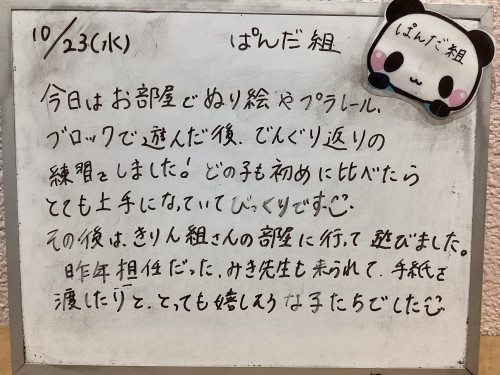 10/23(水) ぱんだ組
ぱんだ組
今日はお部屋でぬり絵やプラレール、
ブロックで遊んだ後、でんぐり返りの
練習をしました! どの子も初めに比べたら
とても上手になっていてびっくりです
その後は、きりん組さんの部屋に行って遊びました。
昨年担任だった、みき先生も来られて、手紙を
渡したりと、とっても嬉しそうな子たちでした